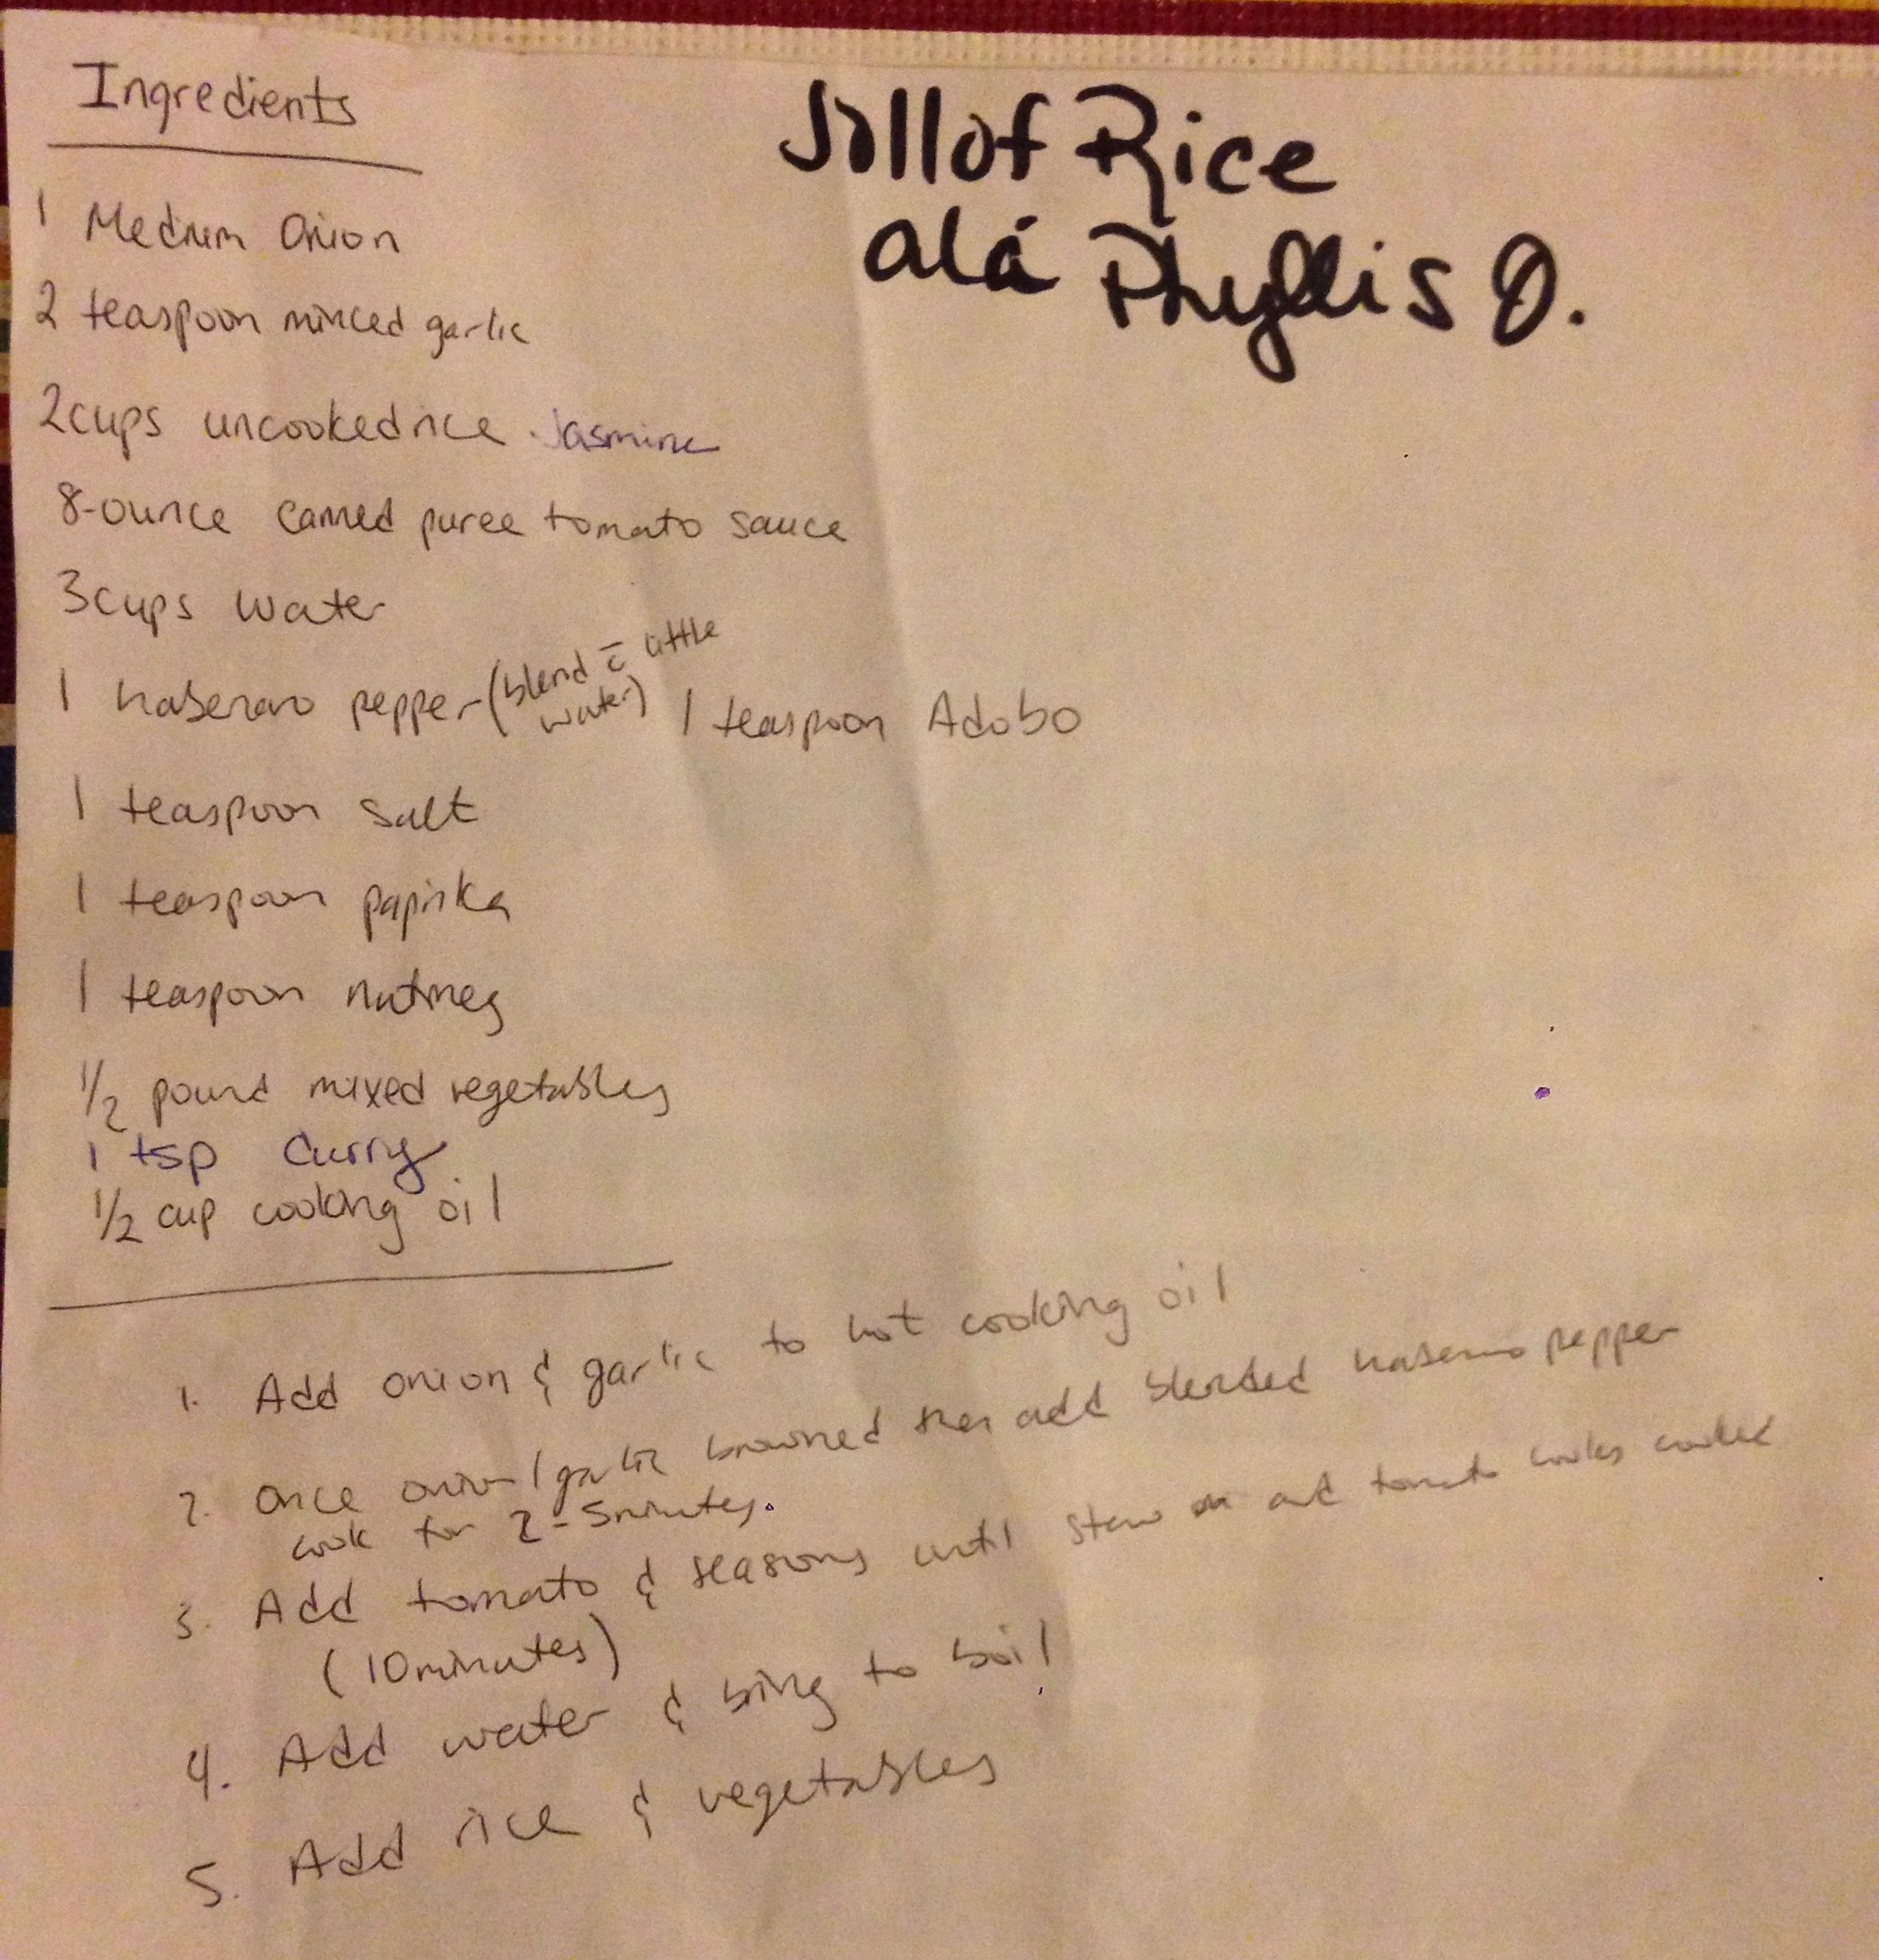 Ingredients
Jollof Rice
alá Phyllis O.
1 Medium Onion
2 teaspoon minced garlic
2cups uncooked rice Jasmine
8-ounce canned puree tomato sauce
3cups water
1 habenaro pepper (blend c̄ little
water) 1 teaspoon Adobo
1 teaspoon salt
1 teaspoon paprika
1 teaspoon nutmeg
1/2 pound mixed vegetables
1 tsp Curry
1/2 cup cooking oil
1. Add onion & garlic to hot cooking oil
2. Once onion/garlic browned then add blended habenaro pepper
cook for 2-5minutes.
3. Add tomato & seasons until stew and tomato looks cooked
(10minutes)
4. Add water & bring to boil
5. Add rice & vegetables